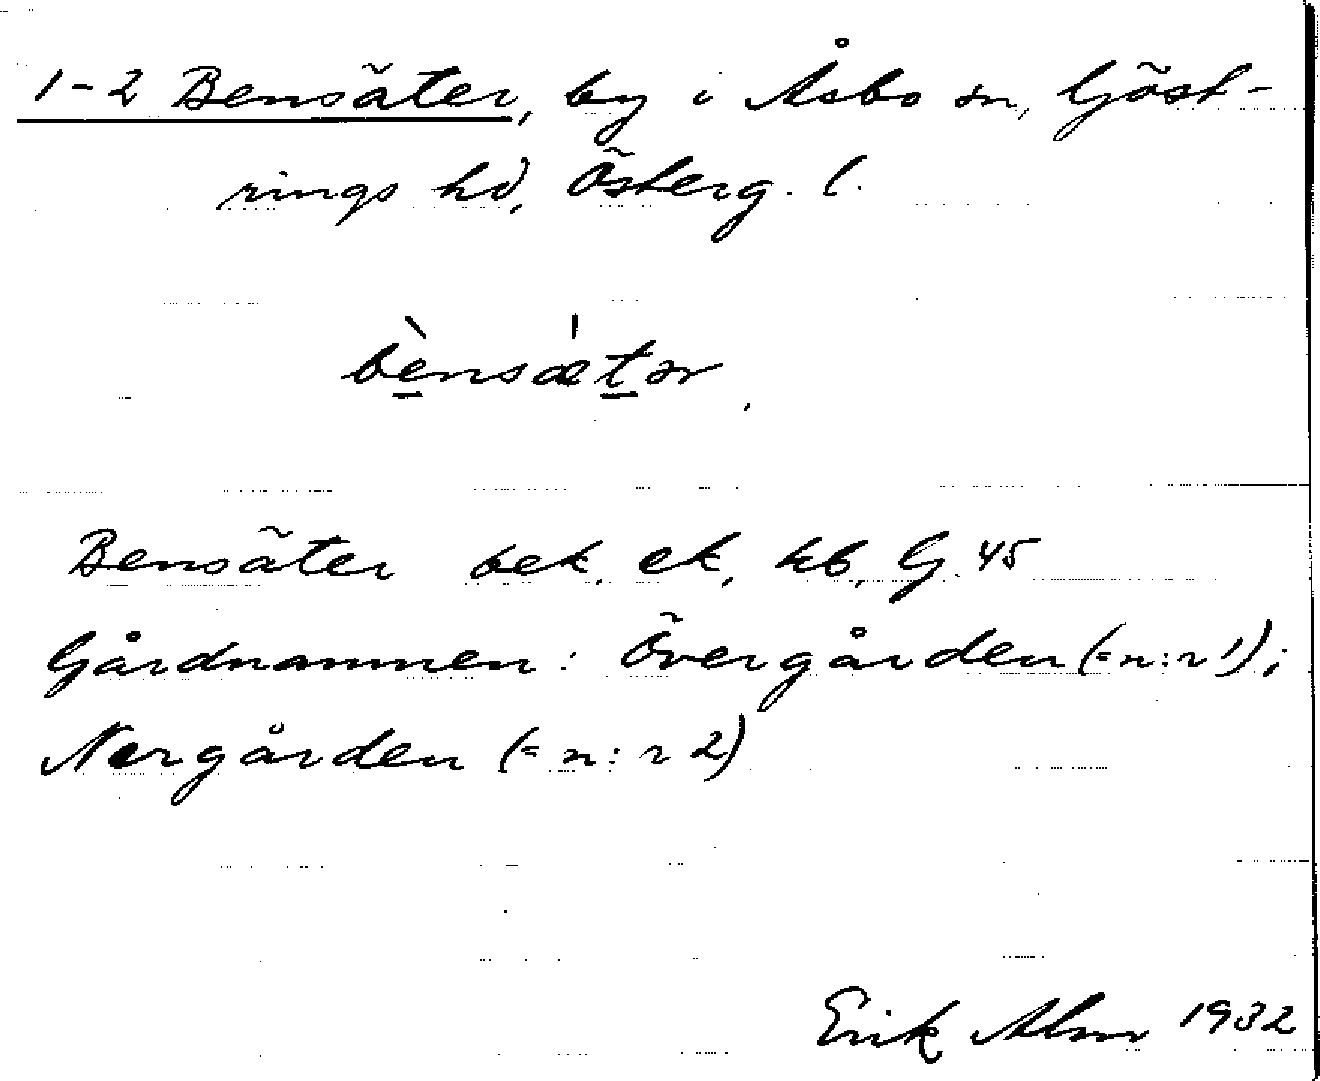 1-2 Bensäter, by i Åsbo sn, Göst-
rings hd, Österg. l.
bènsætər
Bensäter bek. ek, kb, G. 45
Gårdnamnen: Övergården (=n:r 1);
Nergården (= n:r 2)
Erik Alm 1932